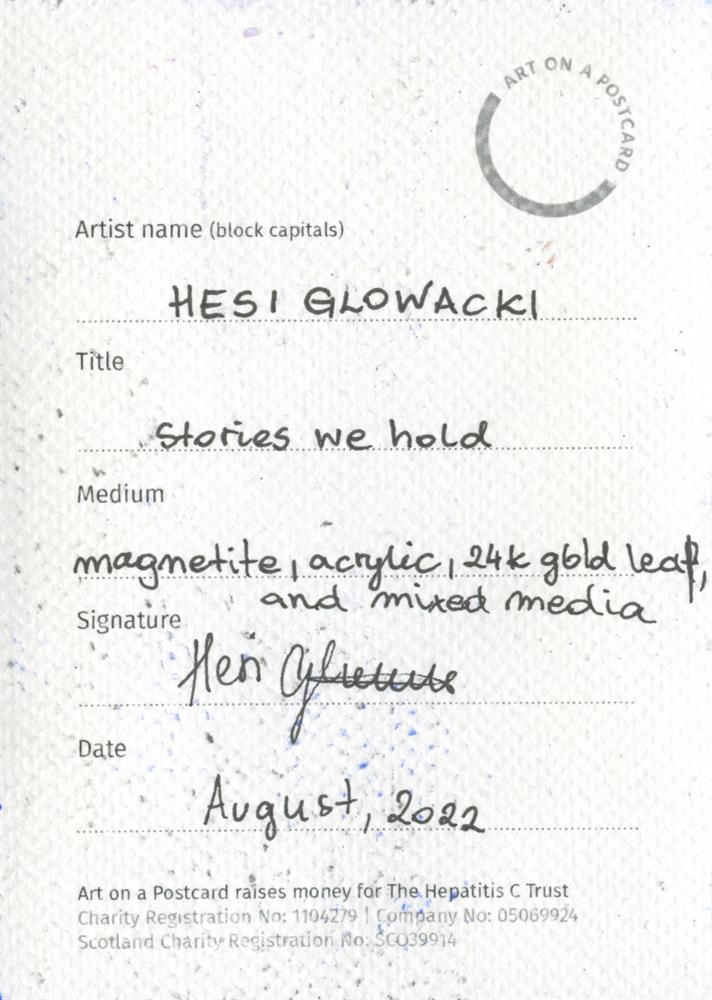 ART ON A POSTCARD
Artist name (block capitals)
HESI GLOWACKI
Title
Stories we hold
Medium
magnetite, acrylic, 24k gold leaf,
and mixed media
Signature
Hesi
Date
August, 2022
Art on a Postcard raises money for The Hepatitis C Trust
Charity Registration No: 1104279 | Company No: 05069924
Scotland Charity Registration No: SCO39914